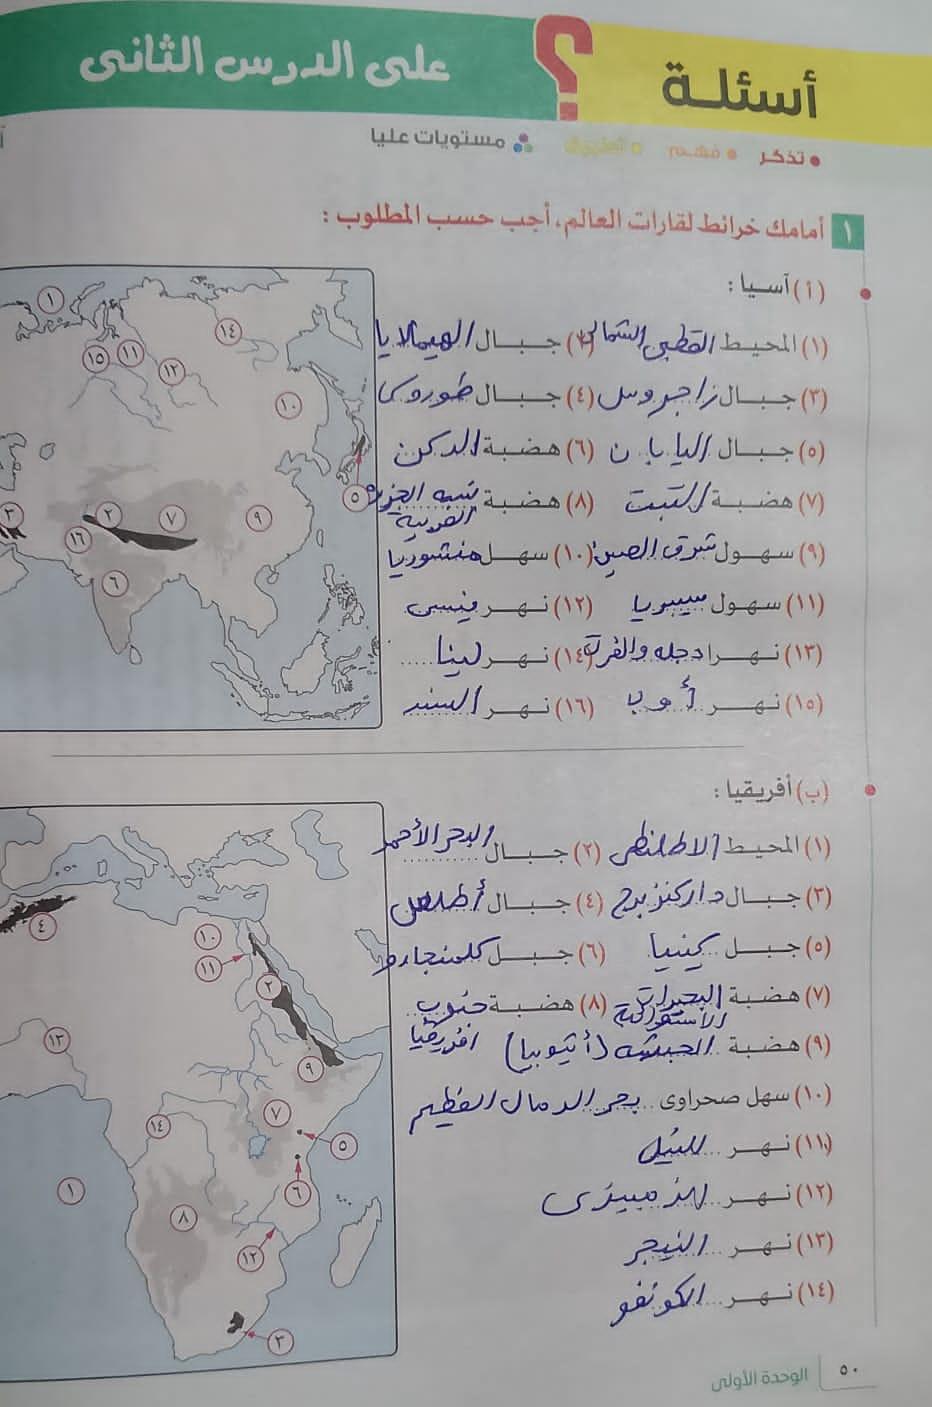 أسئلة ؟ على الدرس الثانى
• تذكر • فهم • تطبيق مستويات عليا
١ أمامك خرائط لقارات العالم، أجب حسب المطلوب :
(أ) آسيا :
(١) المحيط القطبى الشمالى (٢) جبال الهيمالايا
(٣) جبال زاجروس (٤) جبال طوروس
(٥) جبال اليابان (٦) هضبة الدكن
(٧) هضبة التبت (٨) هضبة شبه الجزيرة العربية
(٩) سهول شرق الصين (١٠) سهل منشوريا
(١١) سهول سيبيريا (١٢) نهر ينسى
(١٣) نهرا دجله والفرات (١٤) نهر لينا
(١٥) نهر أوب (١٦) نهر السند
١ ١٤ ١٥ ١١ ١٢ ١٠ ٥ ٣ ٢ ٧ ٩ ١٦ ٦
(ب) أفريقيا :
(١) المحيط الاطلنطى (٢) جبال البحر الأحمر
(٣) جبال داركنزبرج (٤) جبال أطلس
(٥) جبل كينيا (٦) جبل كلمنجارو
(٧) هضبة البحيرات الاستوائية (٨) هضبة جنوب افريقيا
(٩) هضبة الحبشه (أثيوبيا)
(١٠) سهل صحراوى بحر الرمال العظيم
(١١) نهر النيل
(١٢) نهر الزمبيزى
(١٣) نهر النيجر
(١٤) نهر الكونغو
٤ ١٠ ١١ ٢ ١٣ ٩ ٧ ١٤ ٥ ٦ ١ ٨ ١٢ ٣
٥٠ الوحدة الأولى